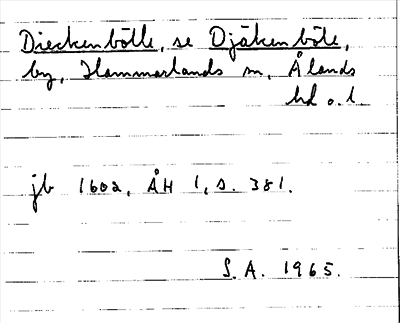 Dieckenbölle, se Djäkenböle,
by, Hammarlands sn, Ålands
hd o. l.
jb 1602, ÅH 1, s. 381.
S.A. 1965.